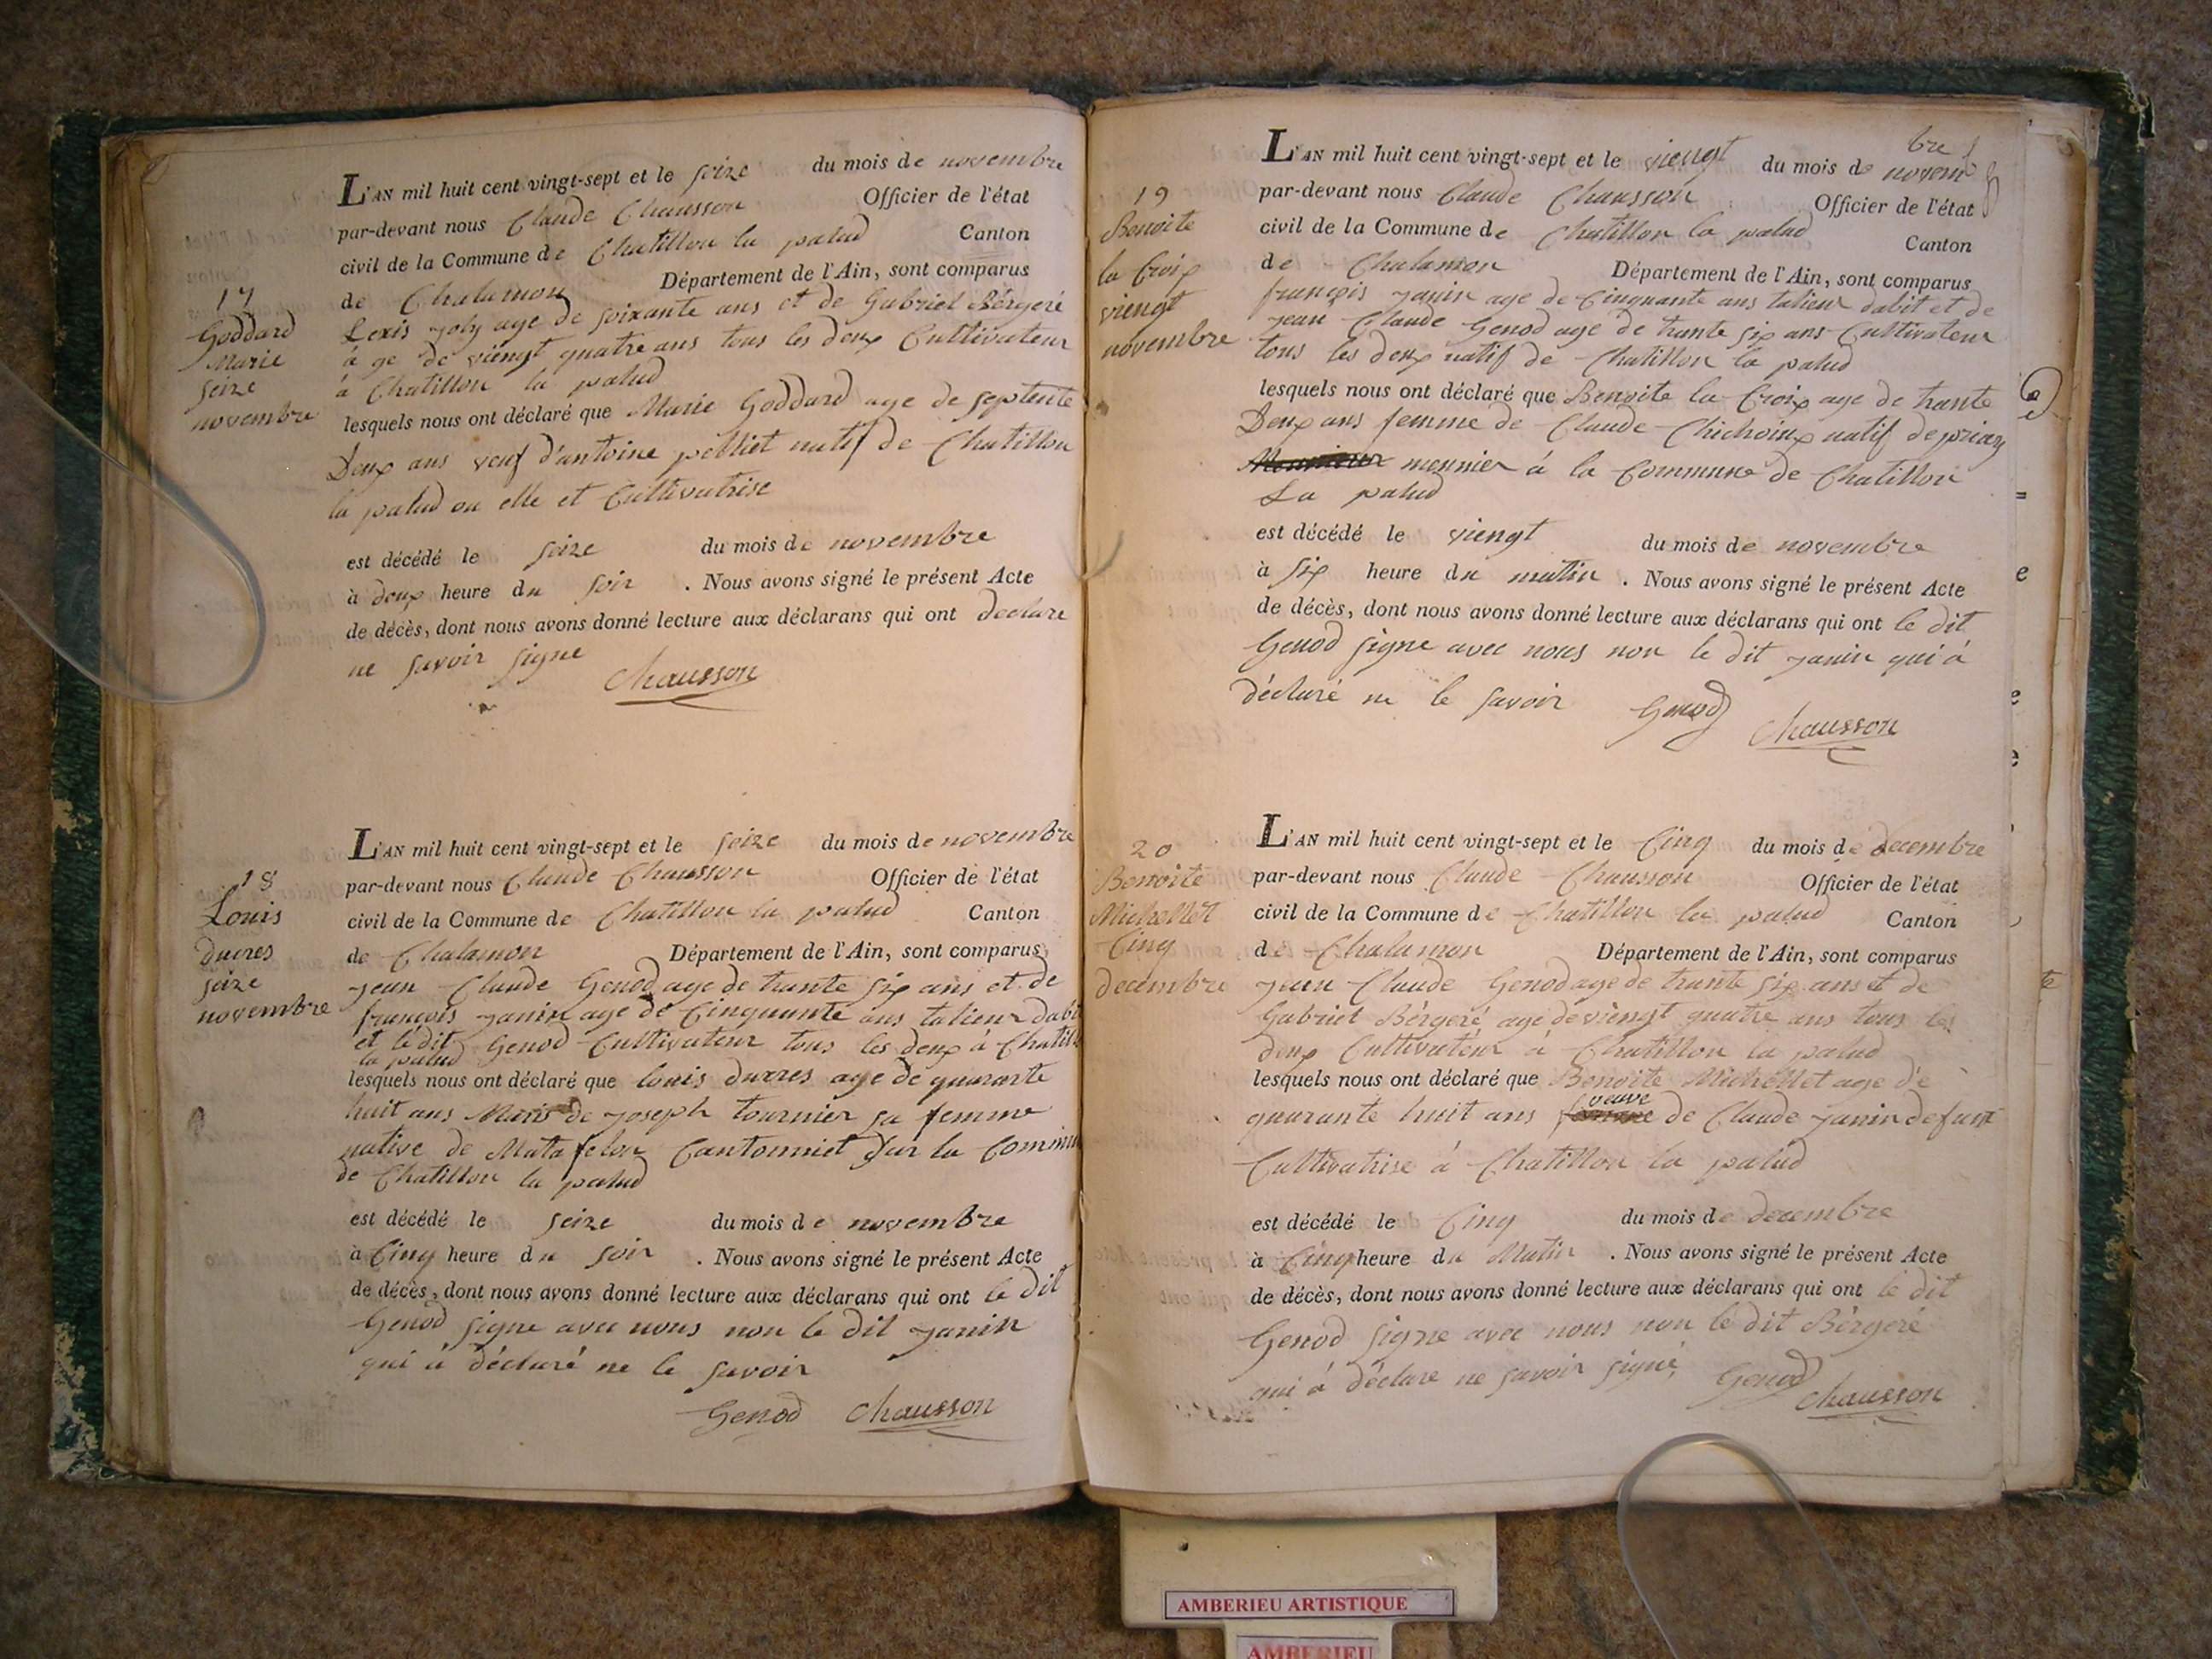 17
Goddard
Marie
seize
novembre
L'AN mil huit cent vingt-sept et le seize du mois de novembre
par-devant nous Claude Chausson Officier de l'état
civil de la Commune de Chatillon la palud Canton
de Chalamon Département de l'Ain, sont comparus
Lexis Joly age de soixante ans et de Gabriel Bérgeré
à ge de viengt quatre ans tous les deux Cultivateur
à Chatillon la palud
lesquels nous ont déclaré que Marie Goddard age de septente
Deux ans veuf d'antoine pelliet natif de Chatillon
la palud ou elle et Cultivatrise
est décédé le seize du mois de novembre
à deux heure du soir . Nous avons signé le présent Acte
de décès, dont nous avons donné lecture aux déclarans qui ont declare
ne savoir signe
Chausson
18
Louis
ducres
seize
novembre
L'AN mil huit cent vingt-sept et le seize du mois de novembre
par-devant nous Claude Chausson Officier de l'état
civil de la Commune de Chatillon la palud Canton
de Chalamon Département de l'Ain, sont comparus
jean Claude Genod age de trante six ans et de
françois janin age de Cinquante ans talieur dabi
et lédit Genod Cultivateur tous les deux à Chatill
la palud
lesquels nous ont déclaré que louis ducres age de quarante
huit ans Maris de joseph tournier sa femme
native de Matafelon Cantonniet sur la Commu
de Chatillon la palud
est décédé le seize du mois de novembre
à Cinq heure du soir . Nous avons signé le présent Acte
de décès, dont nous avons donné lecture aux déclarans qui ont le dit
Genod signe avec nous non le dit janin
qui à déclaré ne le savoir
Genod Chausson
19
Benoite
la Croix
viengt
novembre
bre
L'AN mil huit cent vingt-sept et le viengt du mois de novem
par-devant nous Claude Chausson Officier de l'état
civil de la Commune de Chatillon la palud Canton
de Chalamon Département de l'Ain, sont comparus
françois janin age de Cinquante ans talieur dabit et de
jean Claude Genod age de trante six ans Cultivateur
tous les deux natif de Chatillon la palud
lesquels nous ont déclaré que Benoite la Croix age de trante
Deux ans femme de Claude Chichoix natif de priay
meunier à la Commune de Chatillon
La palud
est décédé le viengt du mois de novembre
à six heure du matin . Nous avons signé le présent Acte
de décès, dont nous avons donné lecture aux déclarans qui ont le dit
Genod signe avec nous non le dit janin qui à
déclaré ne le savoir
Genod Chausson
20
Benoite
Michellet
Cinq
decembre
L'AN mil huit cent vingt-sept et le Cinq du mois de decembre
par-devant nous Claude Chausson Officier de l'état
civil de la Commune de Chatillon la palud Canton
de Chalamon Département de l'Ain, sont comparus
jean Claude Genod age de trante six ans et de
Gabriel Bérgeré age de viengt quatre ans tous les
deux Cultivatéur à Chatillon la palud
lesquels nous ont déclaré que Benoite Michellet age dé
veuve
quarante huit ans femme de Claude janin defunt
Cultivatrise à Chatillon la palud
est décédé le Cinq du mois de decembre
à Cinq heure du Matin . Nous avons signé le présent Acte
de décès, dont nous avons donné lecture aux déclarans qui ont le dit
Genod signe avec nous non le dit Bérgeré
qui à déclare ne savoir signé,
Genod
Chausson
AMBERIEU ARTISTIQUE
AMBERIEU